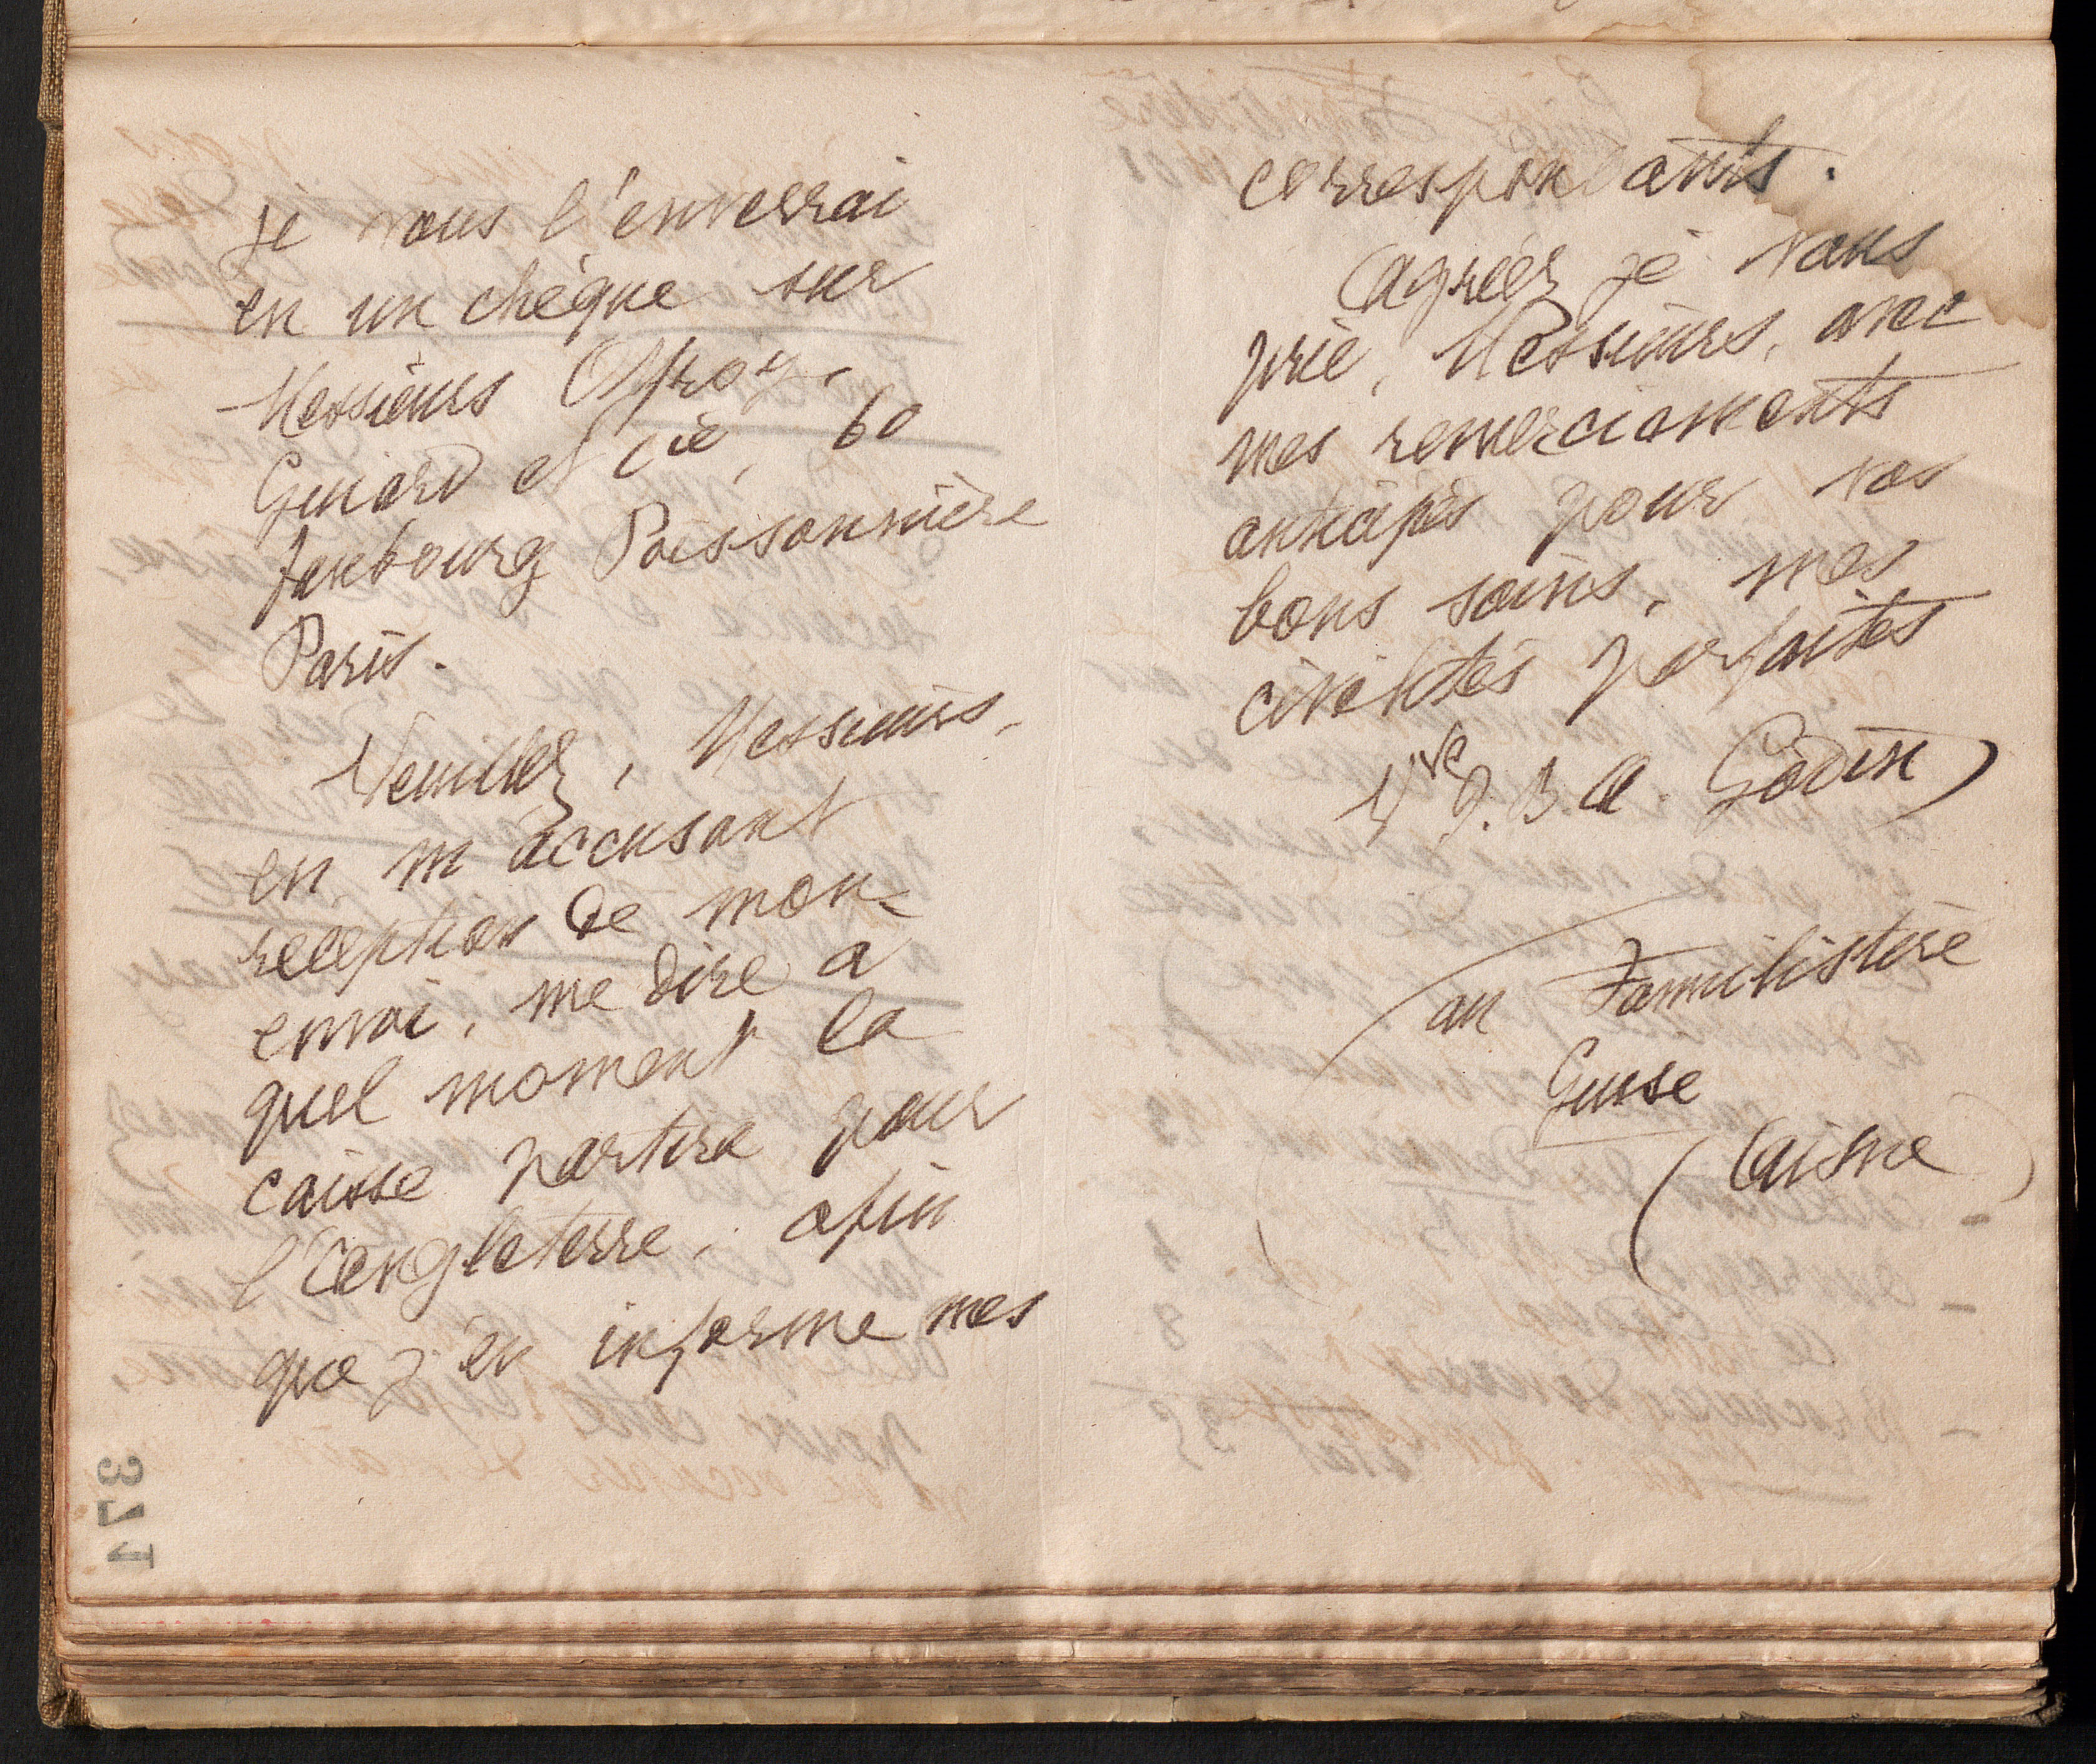 je vous l'enverrai
en un chèque sur
Messieurs Offroy,
Guiard et Cie, 60
faubourg Poissonnière
Paris.
Veuillez, Messieurs,
en m'accusant
réception de mon
envoi, me dire à
quel moment la
caisse partira pour
l'Angleterre, afin
que j'en informe mes
371
correspondants.
Agréez je vous
prie, Messieurs, avec
mes remerciements
anticipés pour vos
bons soins, mes
civilités parfaites
Vve J. B. A. Godin
au Familistère
Guise
(Aisne)